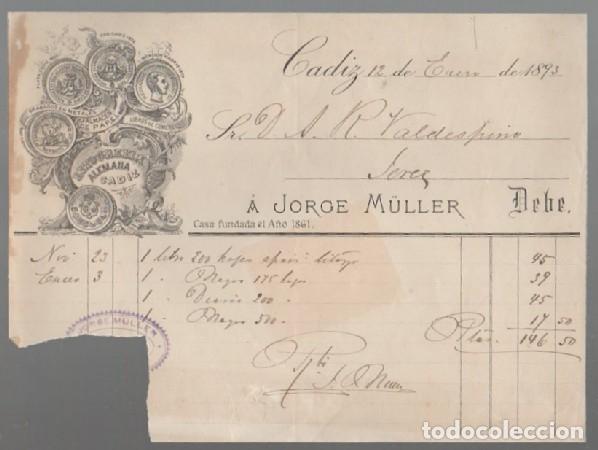 Cadiz 12 de Enero de 1893
Sr. D. A. R. Valdespino
Jerez
LITOGRAFIA
ALEMANA
CADIZ
Á JORGE MÜLLER Debe.
Casa fundada el Año 1861.
Nov 23 1 libro 200 hojas 45
Enero 3 1 Mayor 175 hojas 39
1 Diario 200 45
1 Mayor 500 17 50
Ptas. 146 50
JORGE MÜLLER
Rbi
todocoleccion